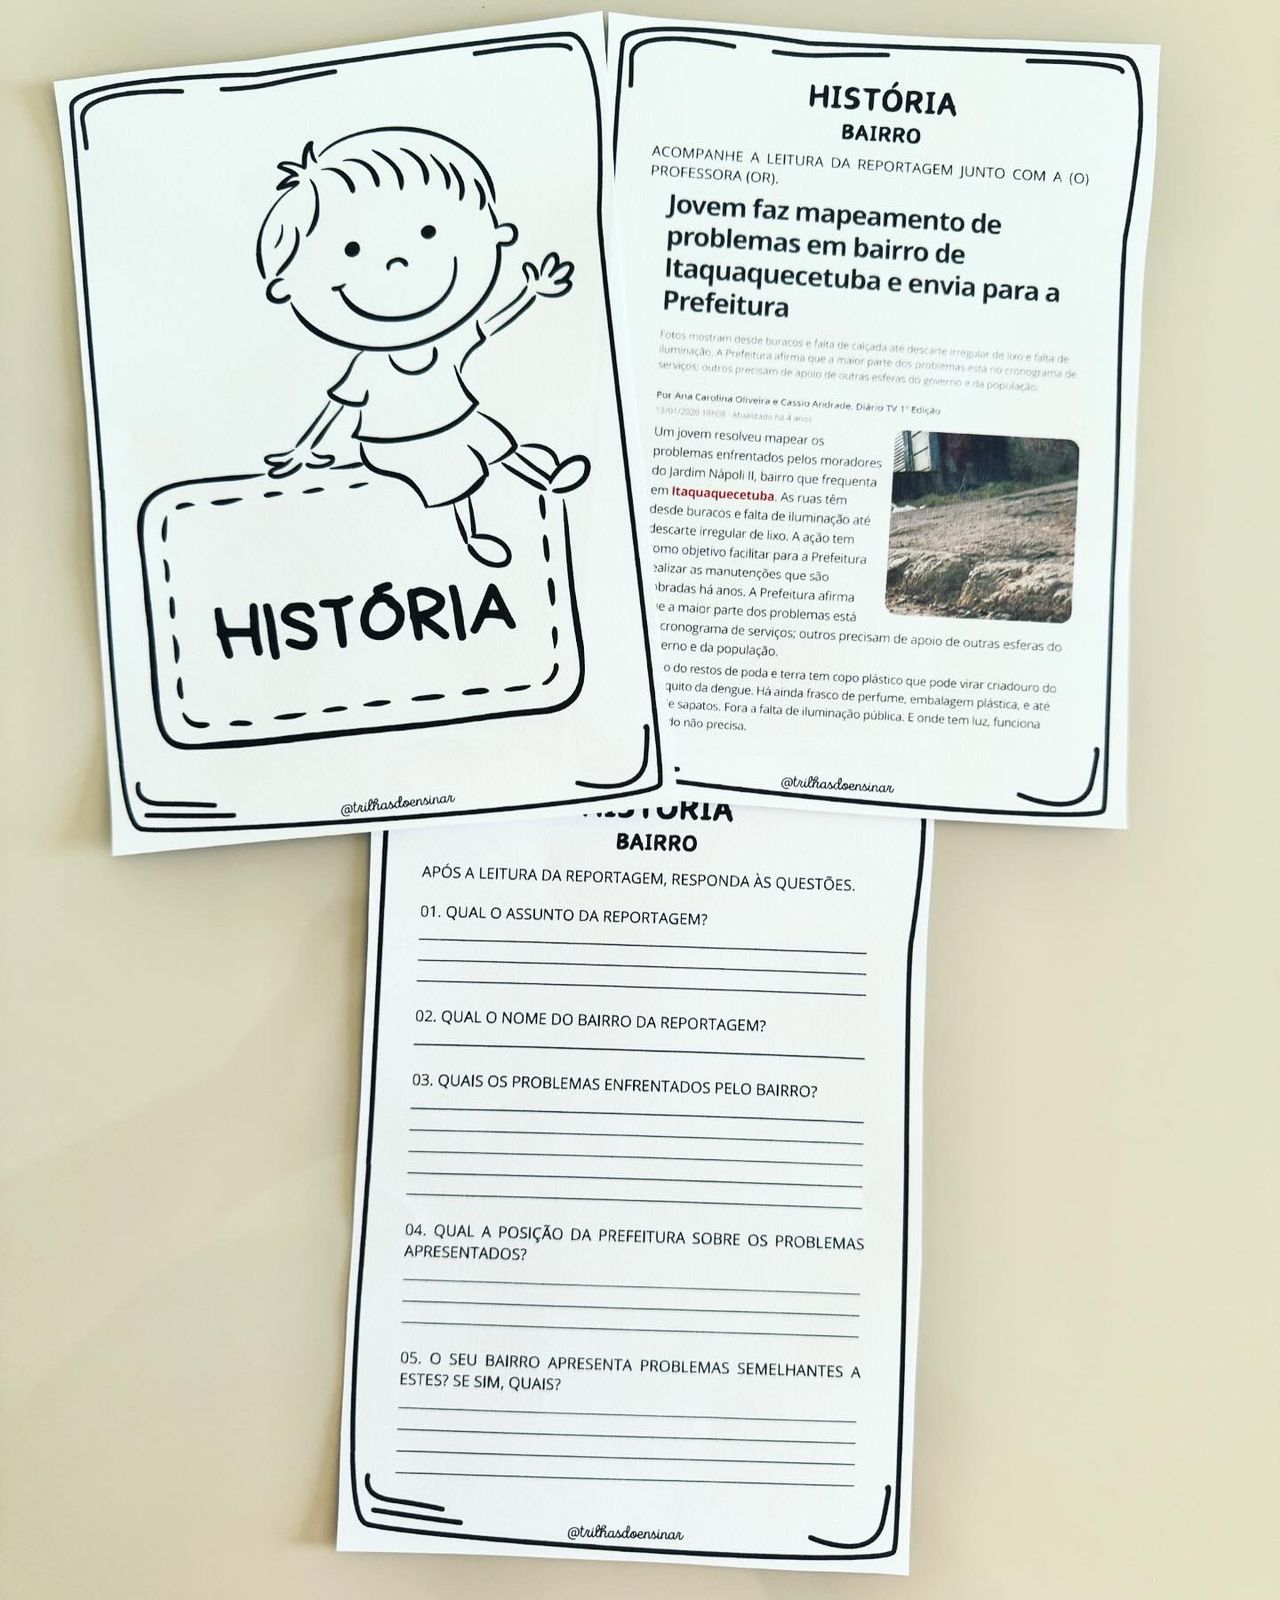 HISTÓRIA
@trilhasdoensinar
HISTÓRIA
BAIRRO
ACOMPANHE A LEITURA DA REPORTAGEM JUNTO COM A (O)
PROFESSORA (OR).
Jovem faz mapeamento de
problemas em bairro de
Itaquaquecetuba e envia para a
Prefeitura
Fotos mostram desde buracos e falta de calçada até descarte irregular de lixo e falta de
iluminação. A Prefeitura afirma que a maior parte dos problemas está no cronograma de
serviços; outros precisam de apoio de outras esferas do governo e da população.
Por Ana Carolina Oliveira e Cassio Andrade, Diário TV 1ª Edição
13/01/2020 18h08 · Atualizado há 4 anos
Um jovem resolveu mapear os
problemas enfrentados pelos moradores
do Jardim Nápoli II, bairro que frequenta
em Itaquaquecetuba. As ruas têm
desde buracos e falta de iluminação até
descarte irregular de lixo. A ação tem
omo objetivo facilitar para a Prefeitura
ealizar as manutenções que são
obradas há anos. A Prefeitura afirma
e a maior parte dos problemas está
cronograma de serviços; outros precisam de apoio de outras esferas do
erno e da população.
o do restos de poda e terra tem copo plástico que pode virar criadouro do
quito da dengue. Há ainda frasco de perfume, embalagem plástica, e até
e sapatos. Fora a falta de iluminação pública. E onde tem luz, funciona
do não precisa.
@trilhasdoensinar
HISTÓRIA
BAIRRO
APÓS A LEITURA DA REPORTAGEM, RESPONDA ÀS QUESTÕES.
01. QUAL O ASSUNTO DA REPORTAGEM?
02. QUAL O NOME DO BAIRRO DA REPORTAGEM?
03. QUAIS OS PROBLEMAS ENFRENTADOS PELO BAIRRO?
04. QUAL A POSIÇÃO DA PREFEITURA SOBRE OS PROBLEMAS
APRESENTADOS?
05. O SEU BAIRRO APRESENTA PROBLEMAS SEMELHANTES A
ESTES? SE SIM, QUAIS?
@trilhasdoensinar